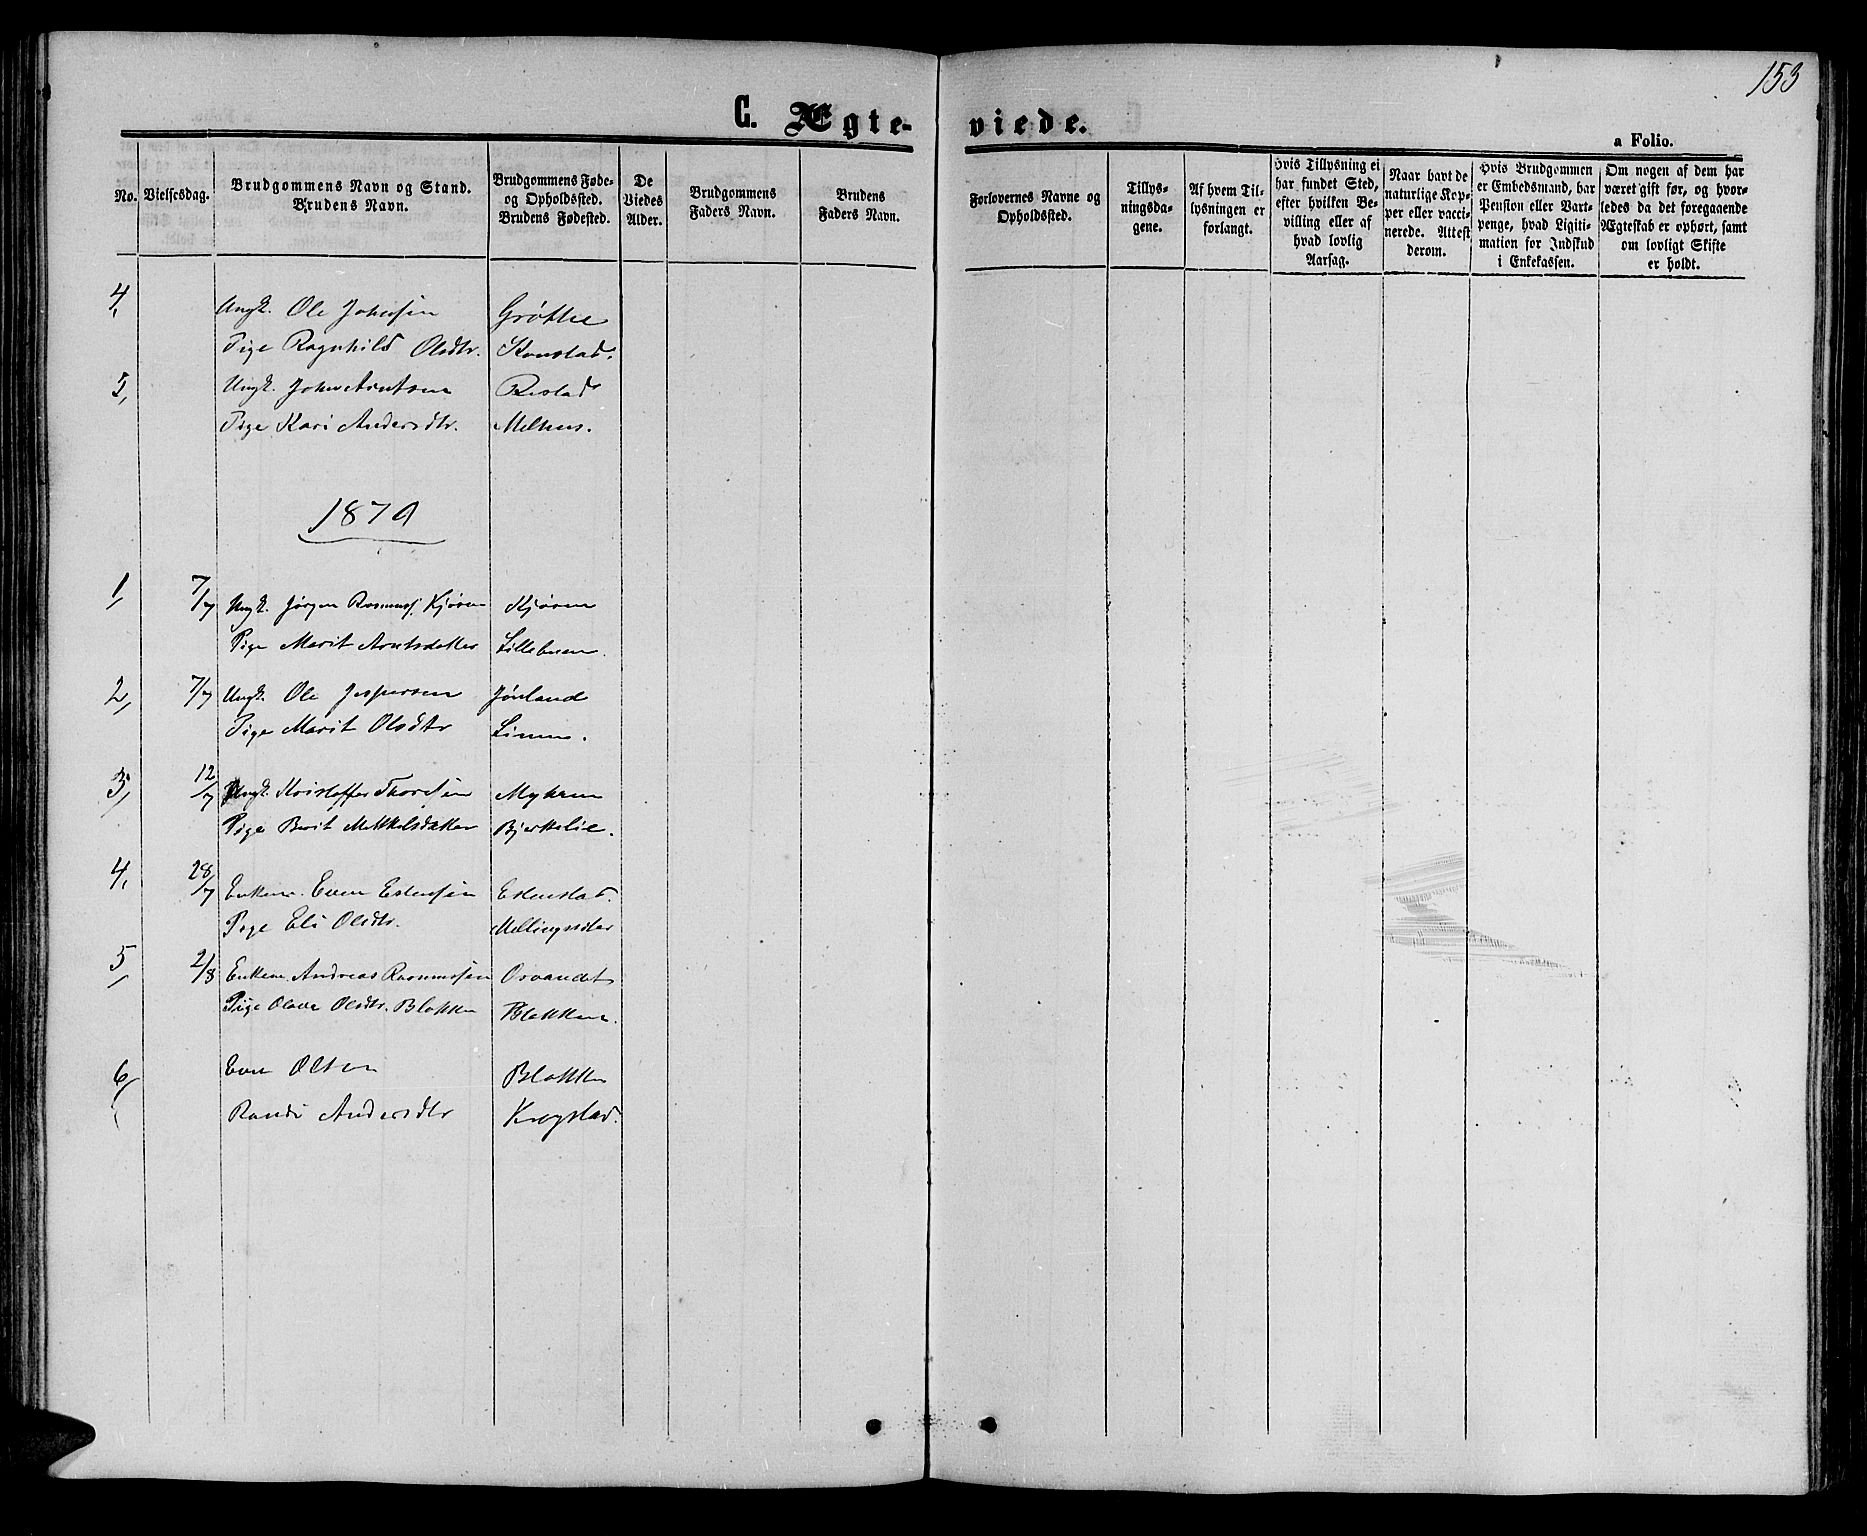 153
C. Ægte-
viede.
a Folio.
No.
Vielsesdag.
Brudgommens Navn og Stand.
Brudens Navn.
Brudgommens Føde-
og Opholdssted.
Brudens Fødested.
De
Viedes
Alder.
Brudgommens
Faders Navn.
Brudens
Faders Navn.
Forlovernes Navne og
Opholdssted.
Tillys-
ningsda-
gene.
Af hvem Til-
lysningen er
forlangt.
Hvis Tillysning ei
har fundet Sted,
efter hvilken Be-
villing eller af
hvad lovlig
Aarsag.
Naar havt de
naturlige Kop-
per eller vacci-
nerede. Attest
derom.
Hvis Brudgommen
er Embedsmand, har
Pension eller Vart-
penge, hvad Ligiti-
mation for Indskud
i Enkekassen.
Om nogen af dem har
været gift før, og hvor-
ledes da det foregaaende
Ægteskab er ophørt, samt
om lovligt Skifte
er holdt.
4, Ungk. Ole Johnsen Grøtte
Pige Ragnhild Olsdtr. Konstad.
5, Ungk. John Arntsen Restad
Pige Kari Andersdtr. Melhus.
1879
1, 7/7 Ungk. Jørgen Rasmuss. Kjøren Kjøren
Pige Marit Arntsdatter Lillebuen.
2, 7/7 Ungk. Ole Jespersen Jønland
Pige Marit Olsdtr Limm.
3, 12/7 Ungk. Kristoffer Thoresen Myhren
Pige Berit Mikkelsdatter Bjerkelie.
4, 28/7 Enkem. Even Estensen Estenstad.
Pige Eli Olsdtr.
5, 2/8 Enkem. Andreas Rasmussen Osvandet
Pige Olava Olsdtr. Blokken Blokken.
6, Even Olsen Blokken
Randi Andersdtr Krogstad.